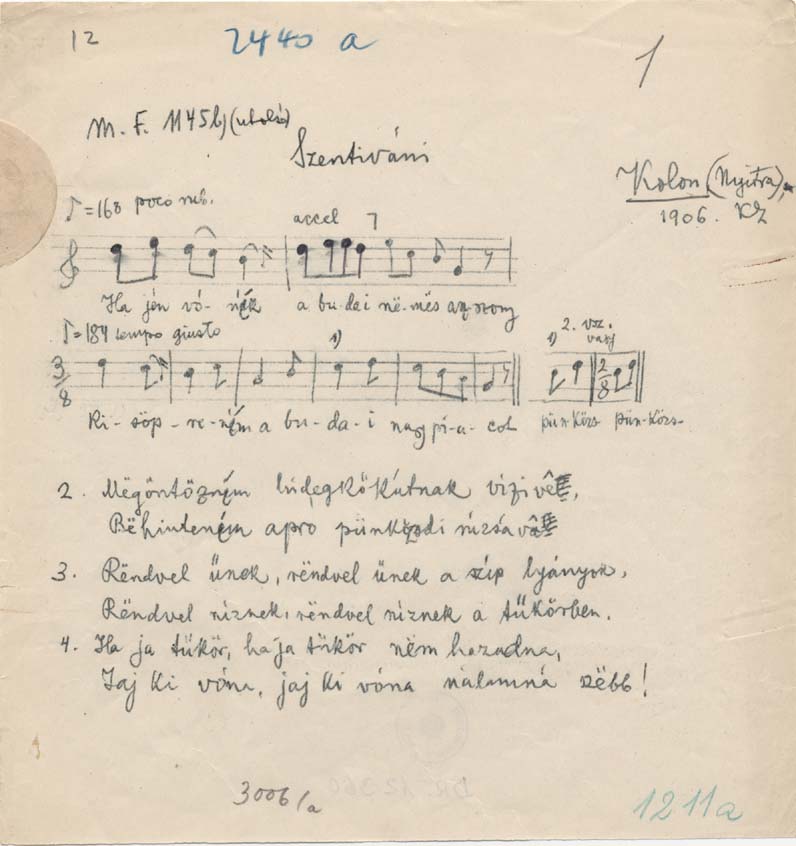 12
2440 a
1
M. F. 1145b) (utolsó)
Szentiváni
Kolon (Nyitra),
1906. KZ
♪=168 poco rub.
accel
Ha jén vó-nék a bu-dai në-mës asszony
♪=184 tempo giusto
1)
1) 2. vsz. vagy
3/8
2/8
Ki-söp-re-ném a bu-da-i nagy pi-a-cot pün-közs pün-közs-
2. Mëgöntözném hidegkőkútnak vizivê,
Bëhinteném apró pünközsdi rúzsávê
3. Rëndvel űnek, rëndvel ünek a szíp lyányok,
Rëndvel níznek, rëndvel níznek a tükörben.
4. Ha ja tükör, ha ja tükör nëm hazudna,
Jaj ki vóna, jaj ki vóna nálamná szëbb!
3006/a
1211a